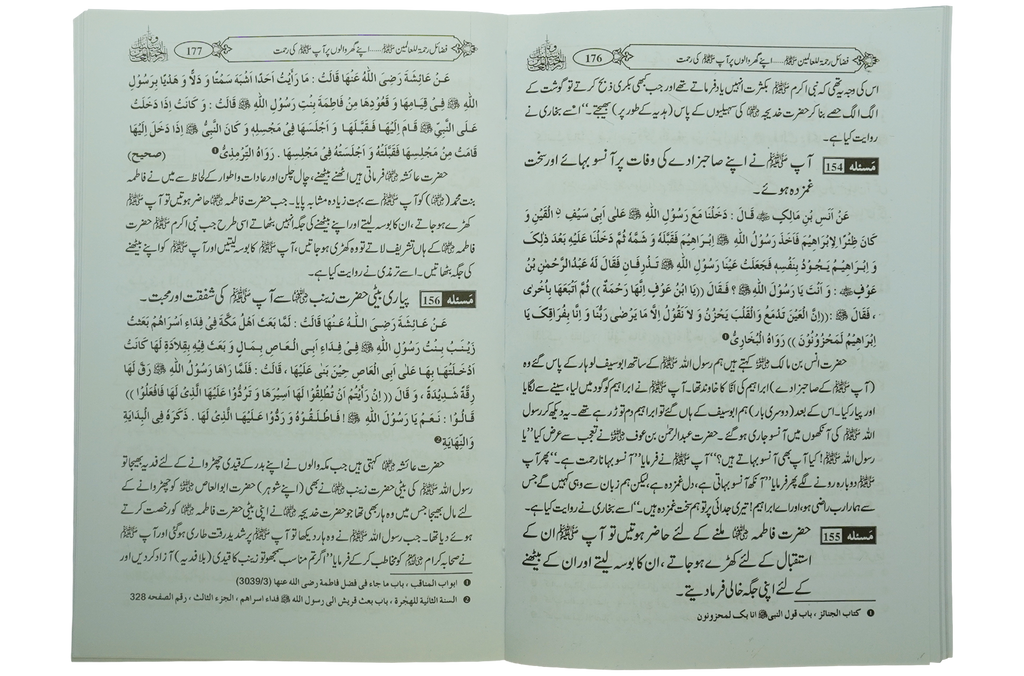 176 فضائل رحمۃ للعالمین ﷺ ..... اپنے گھر والوں پر آپ ﷺ کی رحمت
اس کی وجہ یہ تھی کہ نبی اکرم ﷺ بکثرت انہیں یاد فرماتے تھے اور جب کبھی بکری ذبح کرتے تو گوشت کے
الگ الگ حصے بنا کر حضرت خدیجہ رضی اللہ عنہا کی سہیلیوں کے پاس (ہدیے کے طور پر) بھیجتے۔‘‘ اسے بخاری نے
روایت کیا ہے۔
مسئلہ 154 آپ ﷺ نے اپنے صاحبزادے کی وفات پر آنسو بہائے اور سخت
غمزدہ ہوئے۔
عَنْ اَنَسِ بْنِ مَالِكٍ ؓ قَالَ : دَخَلْنَا مَعَ رَسُوْلِ اللّٰهِ ﷺ عَلٰى اَبِىْ سَيْفِ ۨ الْقَيْنِ وَ
كَانَ ظِئْرًا لِاِبْرَاهِيْمَ فَاَخَذَ رَسُوْلُ اللّٰهِ ﷺ اِبْرَاهِيْمَ فَقَبَّلَهٗ وَ شَمَّهٗ ثُمَّ دَخَلْنَا عَلَيْهِ بَعْدَ ذٰلِكَ
وَ اِبْرَاهِيْمُ يَجُوْدُ بِنَفْسِهٖ فَجَعَلَتْ عَيْنَا رَسُوْلِ اللّٰهِ ﷺ تَذْرِفَانِ فَقَالَ لَهٗ عَبْدُالرَّحْمٰنِ بْنُ
عَوْفٍ ؓ : وَ اَنْتَ يَا رَسُوْلَ اللّٰهِ ﷺ ؟ فَقَالَ (( يَا ابْنَ عَوْفٍ اِنَّهَا رَحْمَةٌ )) ثُمَّ اَتْبَعَهَا بِاُخْرٰى
، فَقَالَ ﷺ : (( اِنَّ الْعَيْنَ تَدْمَعُ وَ الْقَلْبَ يَحْزُنُ وَ لَا نَقُوْلُ اِلَّا مَا يَرْضٰى رَبُّنَا وَ اِنَّا بِفِرَاقِكَ يَا
اِبْرَاهِيْمُ لَمَحْزُوْنُوْنَ )) رَوَاهُ الْبُخَارِىُّ ❶
حضرت انس بن مالک ؓ کہتے ہیں ہم رسول اللہ ﷺ کے ساتھ ابو سیف لوہار کے پاس گئے وہ
(آپ ﷺ کے صاحبزادے) ابراہیم کی انّا کا خاوند تھا۔ آپ ﷺ نے ابراہیم کو گود میں لیا، سینے سے لگایا
اور پیار کیا۔ اس کے بعد (دوسری بار) ہم ابو سیف کے ہاں گئے تو ابراہیم دم توڑ رہے تھے۔ یہ دیکھ کر رسول
اللہ ﷺ کی آنکھوں میں آنسو جاری ہو گئے۔ حضرت عبدالرحمٰن بن عوف ؓ نے تعجب سے عرض کیا ’’یا
رسول اللہ ﷺ! کیا آپ بھی آنسو بہاتے ہیں؟‘‘ آپ ﷺ نے فرمایا ’’آنسو بہانا رحمت ہے۔‘‘ پھر آپ
ﷺ دوبارہ رونے لگے پھر فرمایا ’’آنکھ آنسو بہاتی ہے، دل غمزدہ ہے، لیکن ہم زبان سے وہی کہیں گے جس
سے ہمارا رب راضی ہو، اور اے ابراہیم! تیری جدائی پر تو ہم سخت غمزدہ ہیں۔‘‘ اسے بخاری نے روایت کیا ہے۔
مسئلہ 155 حضرت فاطمہ رضی اللہ عنہا ملنے کے لئے حاضر ہوتیں تو آپ ﷺ ان کے
استقبال کے لئے کھڑے ہو جاتے، ان کا بوسہ لیتے اور ان کے بیٹھنے
کے لئے اپنی جگہ خالی فرما دیتے۔
❶ کتاب الجنائز ، باب قول النبی ﷺ انا بک لمحزونون
177 فضائل رحمۃ للعالمین ﷺ ..... اپنے گھر والوں پر آپ ﷺ کی رحمت
عَنْ عَائِشَةَ رَضِىَ اللّٰهُ عَنْهَا قَالَتْ : مَا رَاَيْتُ اَحَدًا اَشْبَهَ سَمْتًا وَ دَلًّا وَ هَدْيًا بِرَسُوْلِ
اللّٰهِ ﷺ فِىْ قِيَامِهَا وَ قُعُوْدِهَا مِنْ فَاطِمَةَ بِنْتِ رَسُوْلِ اللّٰهِ ﷺ قَالَتْ : وَ كَانَتْ اِذَا دَخَلَتْ
عَلَى النَّبِىِّ ﷺ قَامَ اِلَيْهَا فَقَبَّلَهَا وَ اَجْلَسَهَا فِىْ مَجْلِسِهٖ وَ كَانَ النَّبِىُّ ﷺ اِذَا دَخَلَ اِلَيْهَا
قَامَتْ مِنْ مَجْلِسِهَا فَقَبَّلَتْهُ وَ اَجْلَسَتْهُ فِىْ مَجْلِسِهَا . رَوَاهُ التِّرْمِذِىُّ ❶ (صحیح)
حضرت عائشہ رضی اللہ عنہا فرماتی ہیں اٹھنے بیٹھنے، چال چلن اور عادات واطوار کے لحاظ سے میں نے فاطمہ
بنت محمد (ﷺ) کو آپ ﷺ سے بہت زیادہ مشابہ پایا۔ جب حضرت فاطمہ رضی اللہ عنہا حاضر ہوتیں تو آپ ﷺ
کھڑے ہو جاتے، ان کا بوسہ لیتے اور اپنے بیٹھنے کی جگہ انہیں بٹھاتے اسی طرح جب نبی اکرم ﷺ حضرت
فاطمہ رضی اللہ عنہا کے ہاں تشریف لاتے تو وہ کھڑی ہو جاتیں، آپ ﷺ کا بوسہ لیتیں اور آپ ﷺ کو اپنے بیٹھنے
کی جگہ بٹھاتیں۔ اسے ترمذی نے روایت کیا ہے۔
مسئلہ 156 پیاری بیٹی حضرت زینب رضی اللہ عنہا سے آپ ﷺ کی شفقت اور محبت۔
عَنْ عَائِشَةَ رَضِىَ اللّٰهُ عَنْهَا قَالَتْ : لَمَّا بَعَثَ اَهْلُ مَكَّةَ فِىْ فِدَاءِ اَسْرَاهُمْ بَعَثَتْ
زَيْنَبُ بِنْتُ رَسُوْلِ اللّٰهِ ﷺ فِىْ فِدَاءِ اَبِى الْعَاصِ بِمَالٍ وَ بَعَثَ فِيْهِ بِقِلَادَةٍ لَهَا كَانَتْ
اَدْخَلَتْهَا بِهَا عَلٰى اَبِى الْعَاصِ حِيْنَ بَنٰى عَلَيْهَا ، قَالَتْ : فَلَمَّا رَاٰهَا رَسُوْلُ اللّٰهِ ﷺ رَقَّ لَهَا
رِقَّةً شَدِيْدَةً ، وَ قَالَ (( اِنْ رَاَيْتُمْ اَنْ تُطْلِقُوْا لَهَا اَسِيْرَهَا وَ تَرُدُّوْا عَلَيْهَا الَّذِىْ لَهَا فَافْعَلُوْا ))
قَالُوْا : نَعَمْ يَا رَسُوْلَ اللّٰهِ ﷺ ! فَاَطْلَقُوْهُ وَ رَدُّوْا عَلَيْهَا الَّذِىْ لَهَا . ذَكَرَهٗ فِى الْبِدَايَةِ
وَالنِّهَايَةِ ❷
حضرت عائشہ رضی اللہ عنہا کہتی ہیں جب مکہ والوں نے اپنے بدر کے قیدی چھڑوانے کے لئے فدیہ بھیجا تو
رسول اللہ ﷺ کی بیٹی حضرت زینب رضی اللہ عنہا نے بھی (اپنے شوہر) حضرت ابوالعاص ؓ کو چھڑوانے کے
لئے مال بھیجا جس میں وہ ہار بھی تھا جو حضرت خدیجہ رضی اللہ عنہا نے اپنی بیٹی حضرت فاطمہ رضی اللہ عنہا کو رخصت کرتے
ہوئے دیا تھا۔ جب رسول اللہ ﷺ نے وہ ہار دیکھا تو آپ ﷺ پر شدید رقت طاری ہو گئی اور آپ ﷺ
نے صحابہ کرام ؓ کو مخاطب کر کے فرمایا ’’اگر تم مناسب سمجھو تو زینب کا قیدی (بلا فدیہ) آزاد کر دیں اور
❶ ابواب المناقب ، باب ما جاء فی فضل فاطمة رضی الله عنها (3039/3)
❷ السنة الثانية للهجرة ، باب بعث قريش الى رسول الله ﷺ فداء اسراهم ، الجزء الثالث ، رقم الصفحه 328